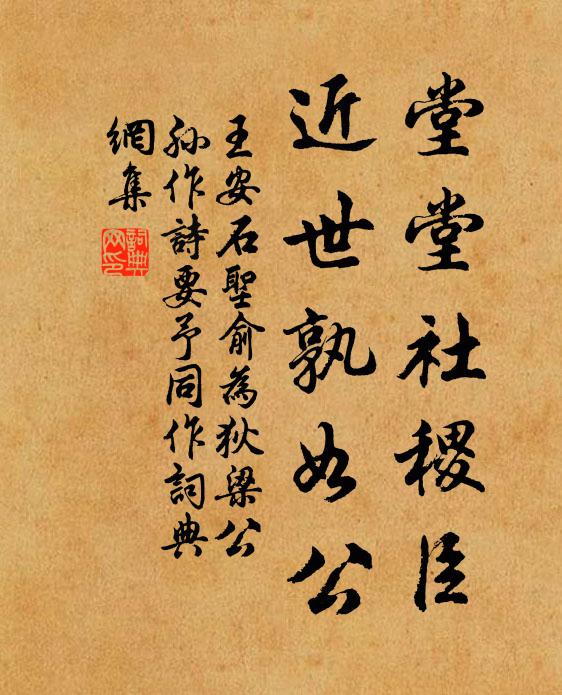 堂堂社稷臣
近世孰如公
王安石聖俞為狄梁公
孫作詩要予同作詞典
網集
詞典
网印